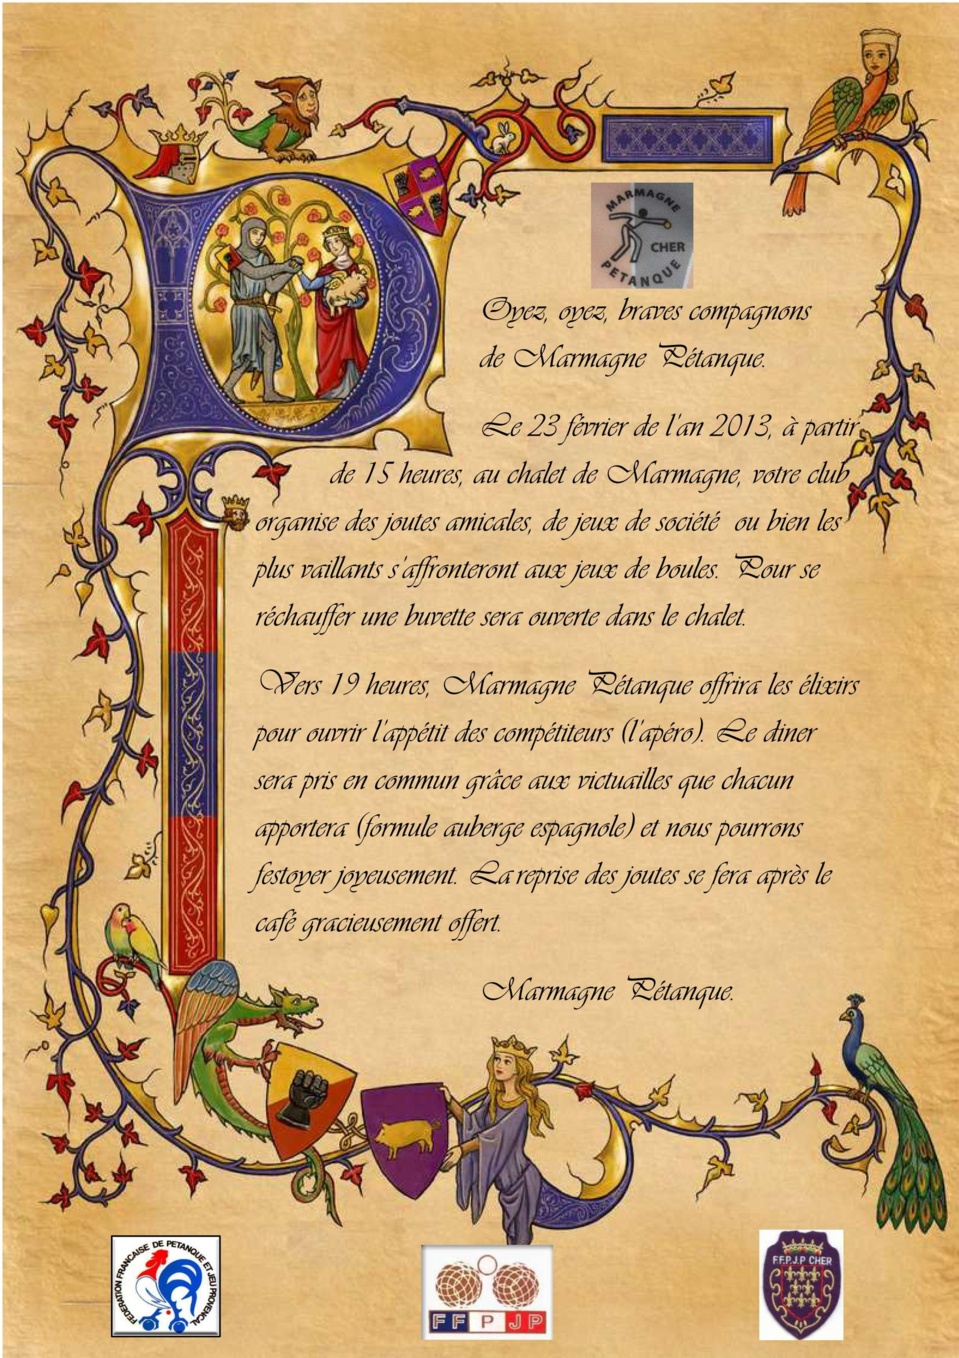 MARMAGNE
CHER
PETANQUE
Oyez, oyez, braves compagnons
de Marmagne Pétanque.
Le 23 février de l'an 2013, à partir
de 15 heures, au chalet de Marmagne, votre club
organise des joutes amicales, de jeux de société ou bien les
plus vaillants s'affronteront aux jeux de boules. Pour se
réchauffer une buvette sera ouverte dans le chalet.
Vers 19 heures, Marmagne Pétanque offrira les élixirs
pour ouvrir l'appétit des compétiteurs (l'apéro). Le diner
sera pris en commun grâce aux victuailles que chacun
apportera (formule auberge espagnole) et nous pourrons
festoyer joyeusement. La reprise des joutes se fera après le
café gracieusement offert.
Marmagne Pétanque.
FEDERATION FRANCAISE DE PETANQUE ET JEU PROVENCAL
FFPJP
F.F.P.J.P CHER